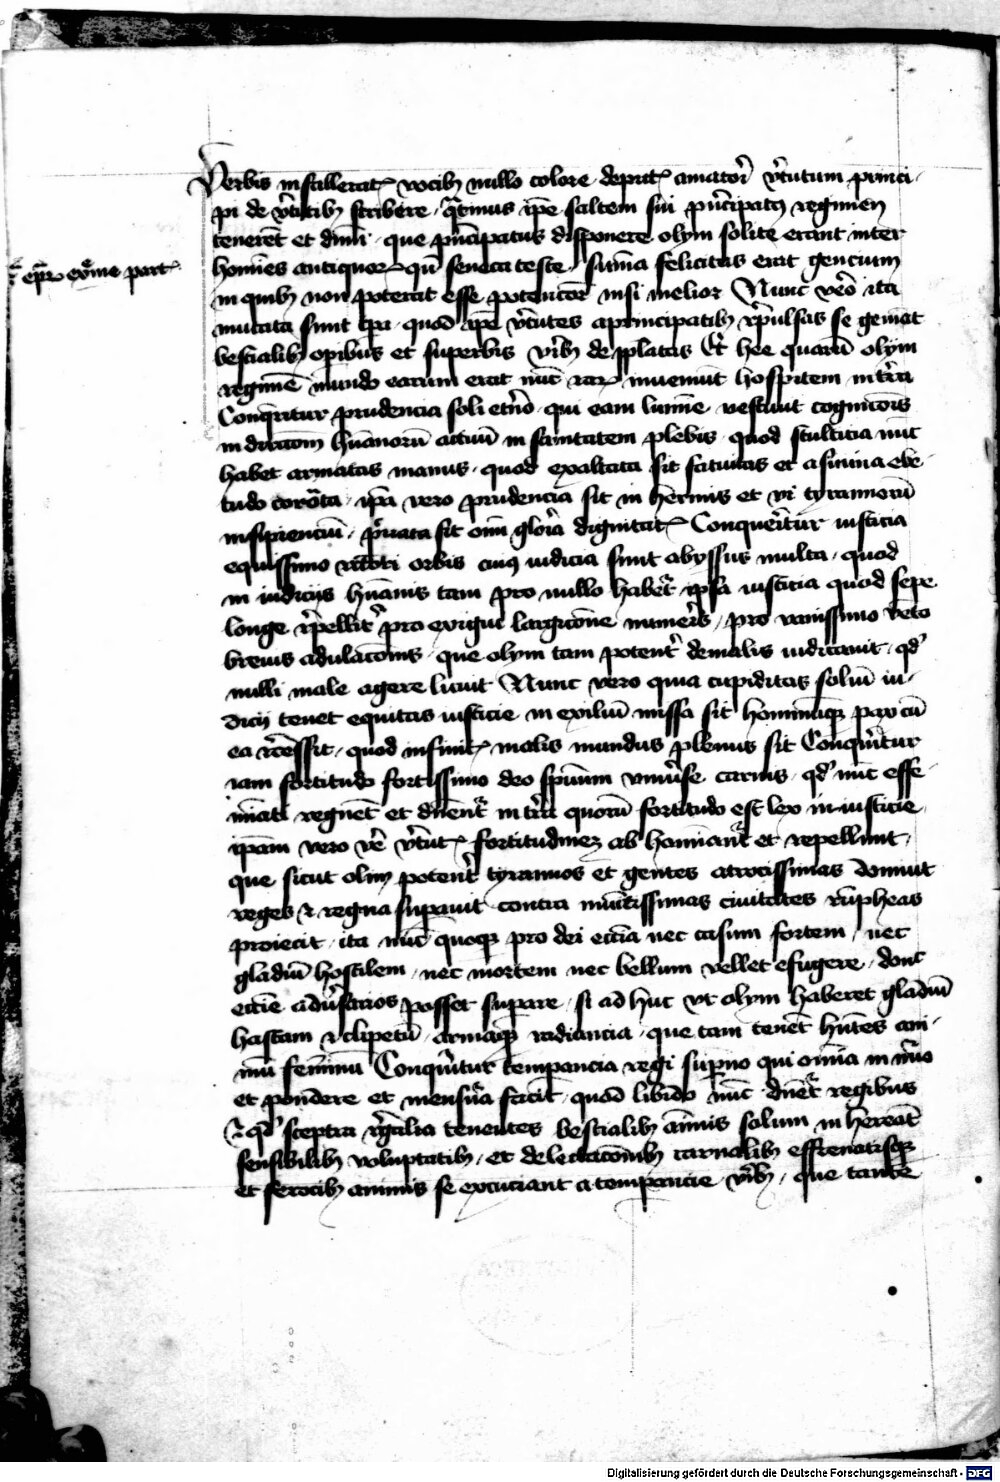 Verbis instillerat vocib nullo colore depict amator vtutum princi
pi de vtutib scribere qtinus ipe saltem sui pncipatus regimen
teneret et dmi que pncipatus disponere olym solite erant inter
epr exīme part
homīes antiquor qn seneca teste suma felicitas erat gencium
in quib non poterat esse potencior nisi melior Nunc vero ita
mutata sunt tpa quod ipe vtutes a principatib repulsas se gemat
bestialib opibus et superbis virib de Et hee quaru olym
regimē mundo carum erat nūc rar inueniūt hospitem in tra
Conqritur prudencia soli etno qui eam lumīe vestiuit cognicōis
in dirccom huānoru actuū in sanitatem plebis quod stulticia nūc
habet armatas manus quod exaltata sit fatuitas et asinina ebe
tudo corōta ipa vero prudencia sit in hermis et vi tyrannoru
insipienciū pruata sit omi gloria dignitat Conqueritur iusticia
equissimo rectori orbis cuius iudicia sunt abyssus multa quod
in iudicijs huānis tam pro nullo habetr ipsa iusticia quod sepe
longe repellitr pro exigui largicōne muneris pro vanissimo vēto
breuis adulacōnis que olym tam potentr de malis iudicauit qd
nulli male agere licuit Nunc vero quia cupiditas soliū iu
dicij tenet equitas iusticie in exiliū missa sit hominūqz pax cū
ea recessit quod infinit malis mundus plenus sit Conqritur
iam fortitudo fortissimo deo spiritūm vniuse carnis qd nūc effe
minati regnēt et dnentr in tra quoru fortitudo est lex in iusticie
ipam vero vē vtut fortitudinez ab hominantr et repellunt
que sicut olim potentr tyrannos et gentes atrocissimas domuit
reges & regna supauit contra munitissimas ciuitates rumpheas
proiecit ita nūc quoqz pro dei eccia nec casum fortem nec
gladiū hostilem nec mortem nec bellum vellet efugere donec
eccie aduersarios posset supare si ad huc vt olym haberet gladiū
hastam & clipeū armaqz radiancia que tam tenēt hntes ani
mū feminū Conqritur tempancia regi supno qui omia in nuo
et pondere et mensura fecit quod libido nūc dnētr regibus
& qd sceptra regalia tenentes bestialib aīmis solum in hereāt
sensibilib voluptatib et delectacōnib carnalib effrenatisqz
et ferocib animis se excuciant a tempancie virib que tante
Digitalisierung gefördert durch die Deutsche Forschungsgemeinschaft - DFG